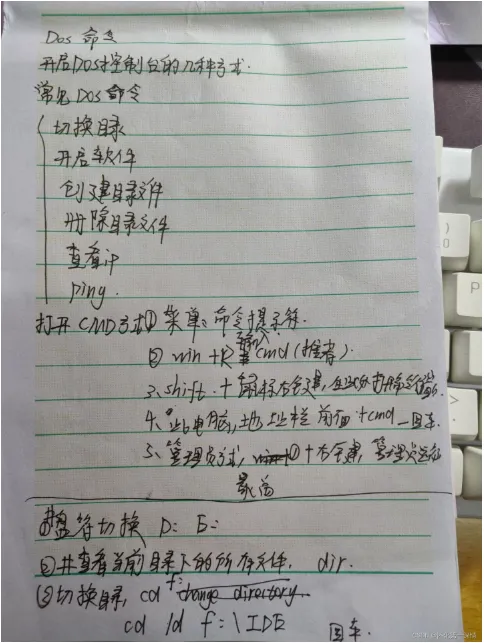 Dos 命令
开启DOS控制台的几种方式.
常见DOS命令
切换目录
开启软件
创建目录文件
删除目录文件
查看ip
ping.
打开CMD方式① 菜单: 命令提示符.
② win + R 输入 cmd (推荐).
3. shift + 鼠标右键, 在此处打开命令窗口.
4. 此电脑, 地址栏前面 + cmd 回车.
5. 管理员方式, ① + 右键, 管理员运行
最高
#盘符切换 D: E:
②#查看当前目录下的所有文件. dir.
③切换目录, cd change directory
cd /d f:\IDE 回车.